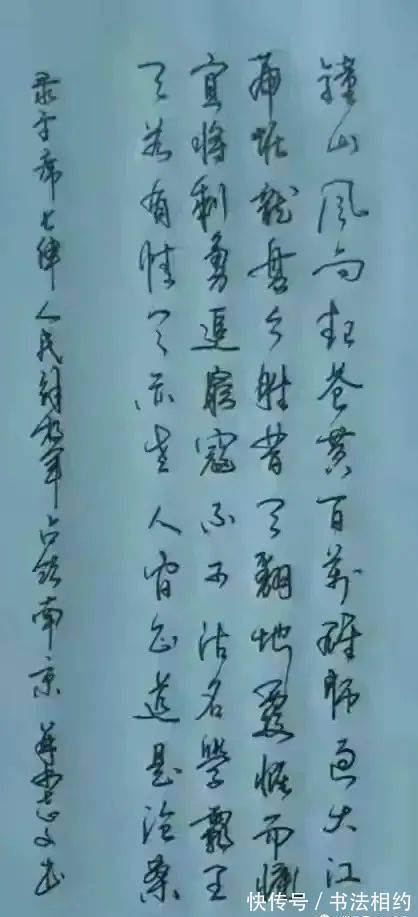 鐘山風雨起苍黄百萬雄師過大江
虎踞龍盤今勝昔天翻地覆慨而慷
宜將剩勇追窮寇不可沽名學霸王
天若有情天亦老人间正道是滄桑
录主席七律人民解放军占领南京 书
快传号 / 书法相约